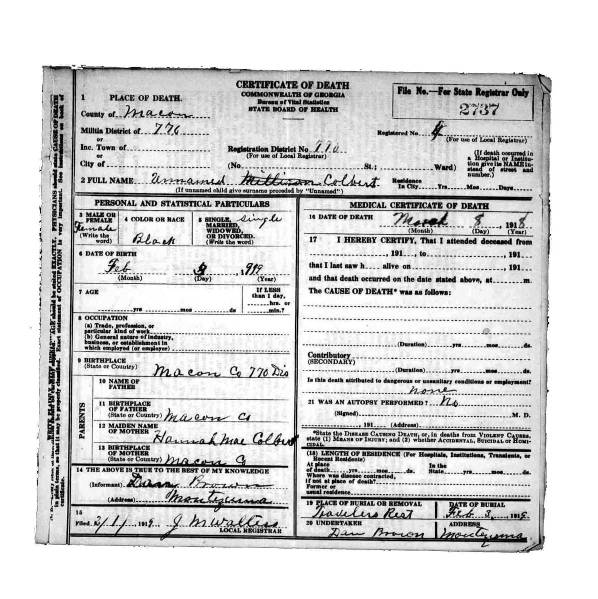 CERTIFICATE OF DEATH
COMMONWEALTH OF GEORGIA
Bureau of Vital Statistics
STATE BOARD OF HEALTH
File No.—For State Registrar Only
2737
1 PLACE OF DEATH.
County of Macon
Militia District of 770
or
Inc. Town of
or
City of
Registration District No 770
(For use of Local Registrar)
Registered No.
(For use of Local Registrar)
(No. St.; Ward)
(If death occurred in a Hospital or Institution give its NAME instead of street and number.)
2 FULL NAME Unnamed Colbert
(If unnamed child give surname preceded by "Unnamed")
Residence In City Yrs. Mos. Days.
PERSONAL AND STATISTICAL PARTICULARS
3 MALE OR FEMALE
Female
(Write the word)
4 COLOR OR RACE
Black
5 SINGLE, MARRIED, WIDOWED, OR DIVORCED.
(Write the word)
single
6 DATE OF BIRTH
Feb
(Month) (Day) (Year)
7 AGE
yrs mos. ds.
If LESS than 1 day,
hrs. or
min.?
8 OCCUPATION
(a) Trade, profession, or
particular kind of work
(b) General nature of industry,
business, or establishment in
which employed (or employer)
9 BIRTHPLACE
(State or Country)
Macon Co 770 Dis
PARENTS
10 NAME OF FATHER
11 BIRTHPLACE OF FATHER
(State or Country) Macon Co
12 MAIDEN NAME OF MOTHER
Hannah Mae Colbert
13 BIRTHPLACE OF MOTHER
(State or Country) Macon Co
14 THE ABOVE IS TRUE TO THE BEST OF MY KNOWLEDGE
(Informant) Dan Brown
(Address) Montezuma
15
Filed 1919 J. M. Walters
LOCAL REGISTRAR
MEDICAL CERTIFICATE OF DEATH
16 DATE OF DEATH
March 3 1918
(Month) (Day) (Year)
17 I HEREBY CERTIFY, That I attended deceased from
, 191 , to , 191
that I last saw h alive on , 191
and that death occurred on the date stated above, at m.
The CAUSE OF DEATH* was as follows:
(Duration) yrs. mos. ds.
Contributory
(SECONDARY)
(Duration) yrs. mos. ds.
Is this death attributed to dangerous or unsanitary conditions or employment?
none
21 WAS AN AUTOPSY PERFORMED? No
(Signed) M. D.
, 191 (Address)
*State the DISEASE CAUSING DEATH, or, in deaths from VIOLENT CAUSES, state (1) MEANS OF INJURY; and (2) whether ACCIDENTAL, SUICIDAL or HOMICIDAL.
(18) LENGTH OF RESIDENCE (For Hospitals, Institutions, Transients, or Recent Residents)
At place of death yrs. mos. ds. In the State yrs. mos. ds.
Where was disease contracted,
if not at place of death?
Former or
usual residence
19 PLACE OF BURIAL OR REMOVAL
Travelers Rest
DATE OF BURIAL
Feb 3, 1919
20 UNDERTAKER
Dan Brown
ADDRESS
Montezuma